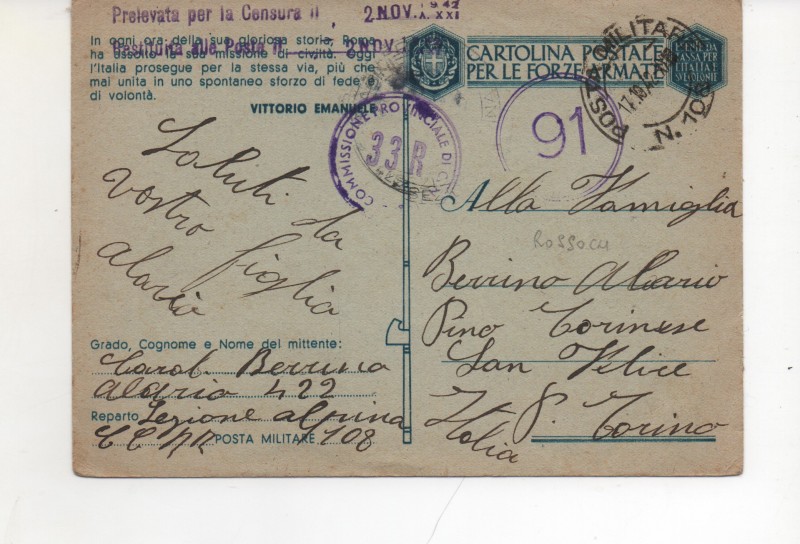 Prelevata per la Censura il 2 NOV. 1942 A. XXI
In ogni ora della sua gloriosa storia, Roma
Restituita alla Posta il 2 NOV.
ha assolto la sua missione di civiltà. Oggi
l'Italia prosegue per la stessa via, più che
mai unita in uno spontaneo sforzo di fede e
di volontà.
VITTORIO EMANUELE
CARTOLINA POSTALE
PER LE FORZE ARMATE
POSTA MILITARE
N. 108
COMMISSIONE PROVINCIALE DI
33R
91
Saluti da
vostro figlia
Alario
Grado, Cognome e Nome del mittente:
Berrino
Alario 422
Reparto Lezione alpina
POSTA MILITARE 108
Alla Famiglia
Berrino Alario
Pino Torinese
San Felice
P. Torino
Italia